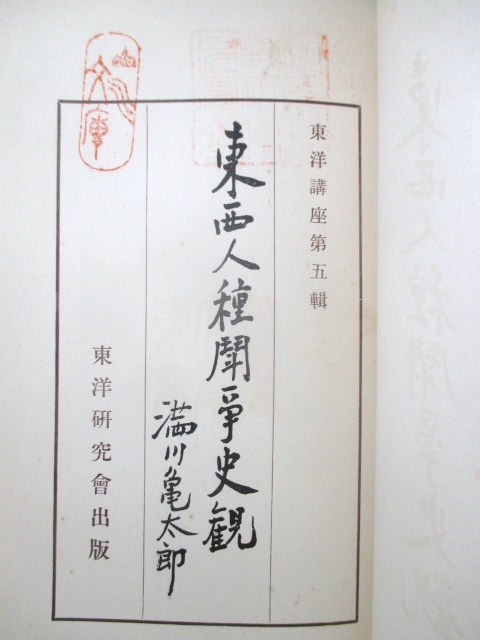 東洋講座第五輯
東西人種鬪爭史観
満川亀太郎
東洋研究會出版
文庫